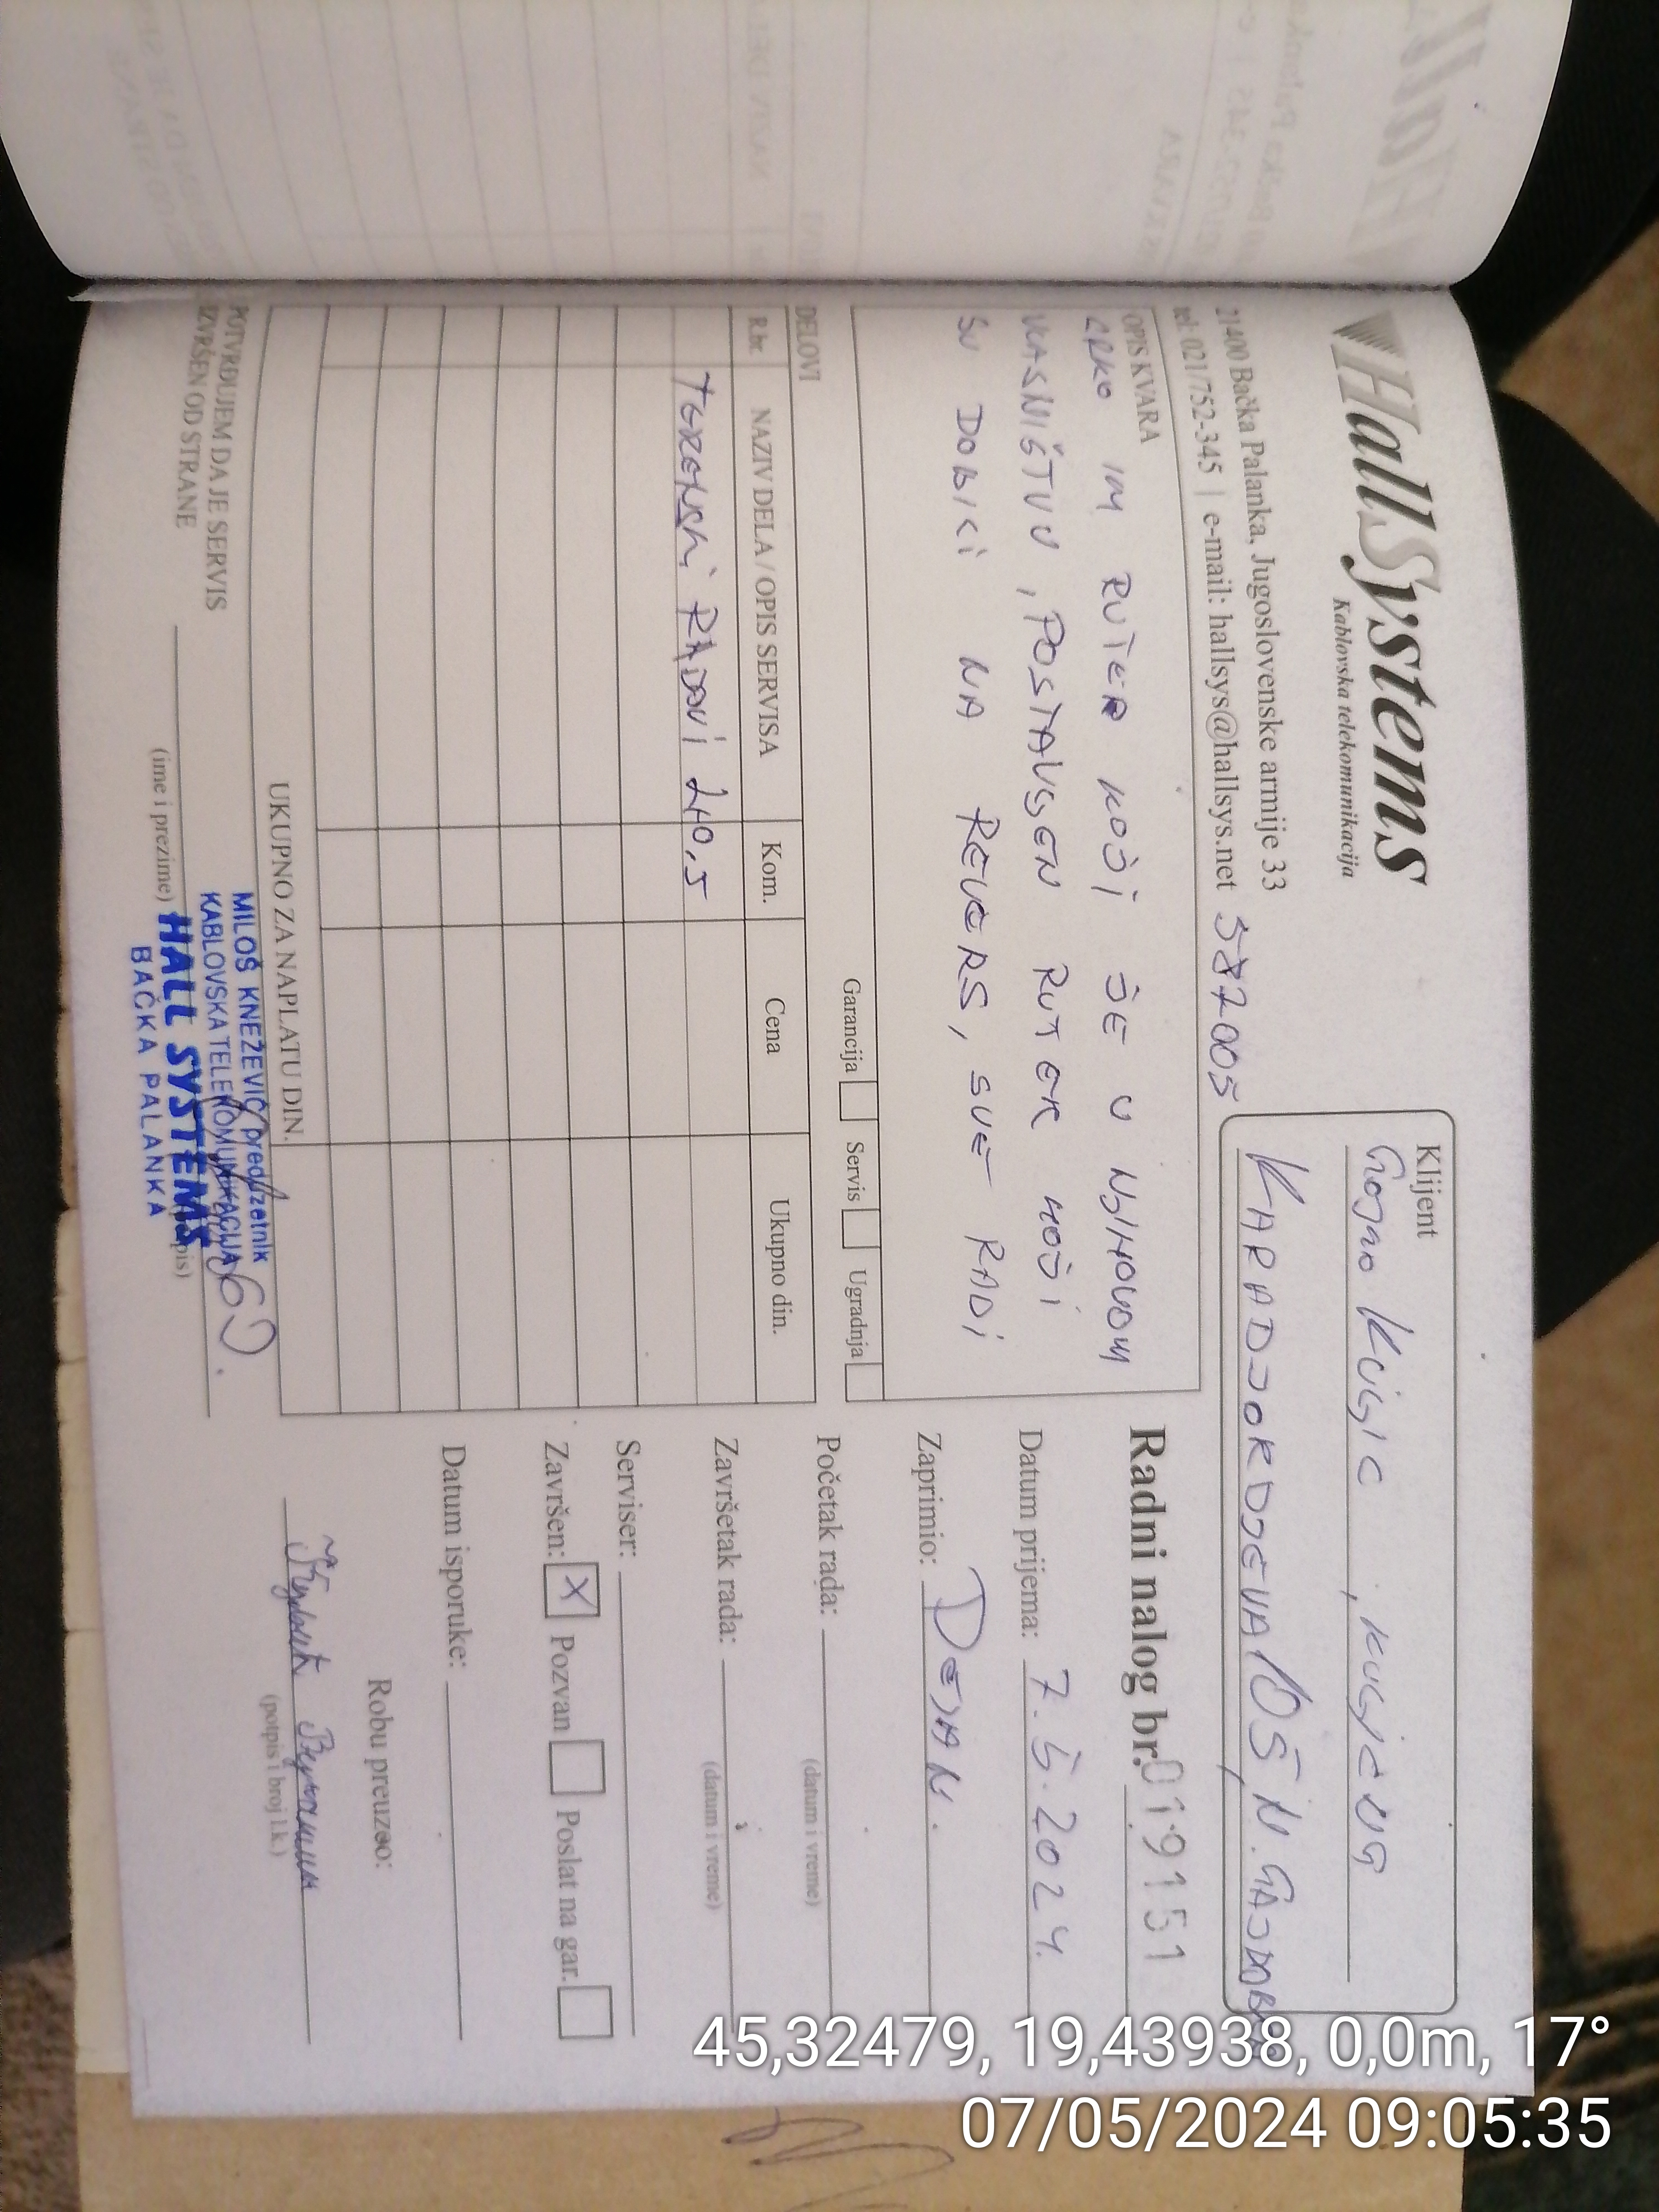 HallSystems
Kablovska telekomunikacija
21400 Bačka Palanka, Jugoslovenske armije 33
tel: 021/752-345 | e-mail: hallsys@hallsys.net 587005
Klijent
KARADJORDJEVA 105, N. GAJDOBRA
OPIS KVARA
CRKO IM RUTER KOJI JE U NJIHOVOM
VLASNIŠTVU, POSTAVLJEN RUTER KOJI
SU DOBILI NA REVERS, SVE RADI
Garancija Servis Ugradnja
DELOVI
R.br. NAZIV DELA / OPIS SERVISA Kom. Cena Ukupno din.
TERENSKI RADOVI 2x0,5
UKUPNO ZA NAPLATU DIN.
POTVRĐUJEM DA JE SERVIS
IZVRŠEN OD STRANE
(ime i prezime)
MILOŠ KNEŽEVIĆ preduzetnik
KABLOVSKA TELEKOMUNIKACIJA
HALL SYSTEMS
BAČKA PALANKA
Radni nalog br. 019151
Datum prijema: 7.5.2024.
Zaprimio: DEJAN.
Početak rada:
(datum i vreme)
Završetak rada:
(datum i vreme)
Serviser:
Završen: X Pozvan Poslat na gar.
Datum isporuke:
Robu preuzeo:
(potpis i broj l.k.)
45,32479, 19,43938, 0,0m, 17°
07/05/2024 09:05:35